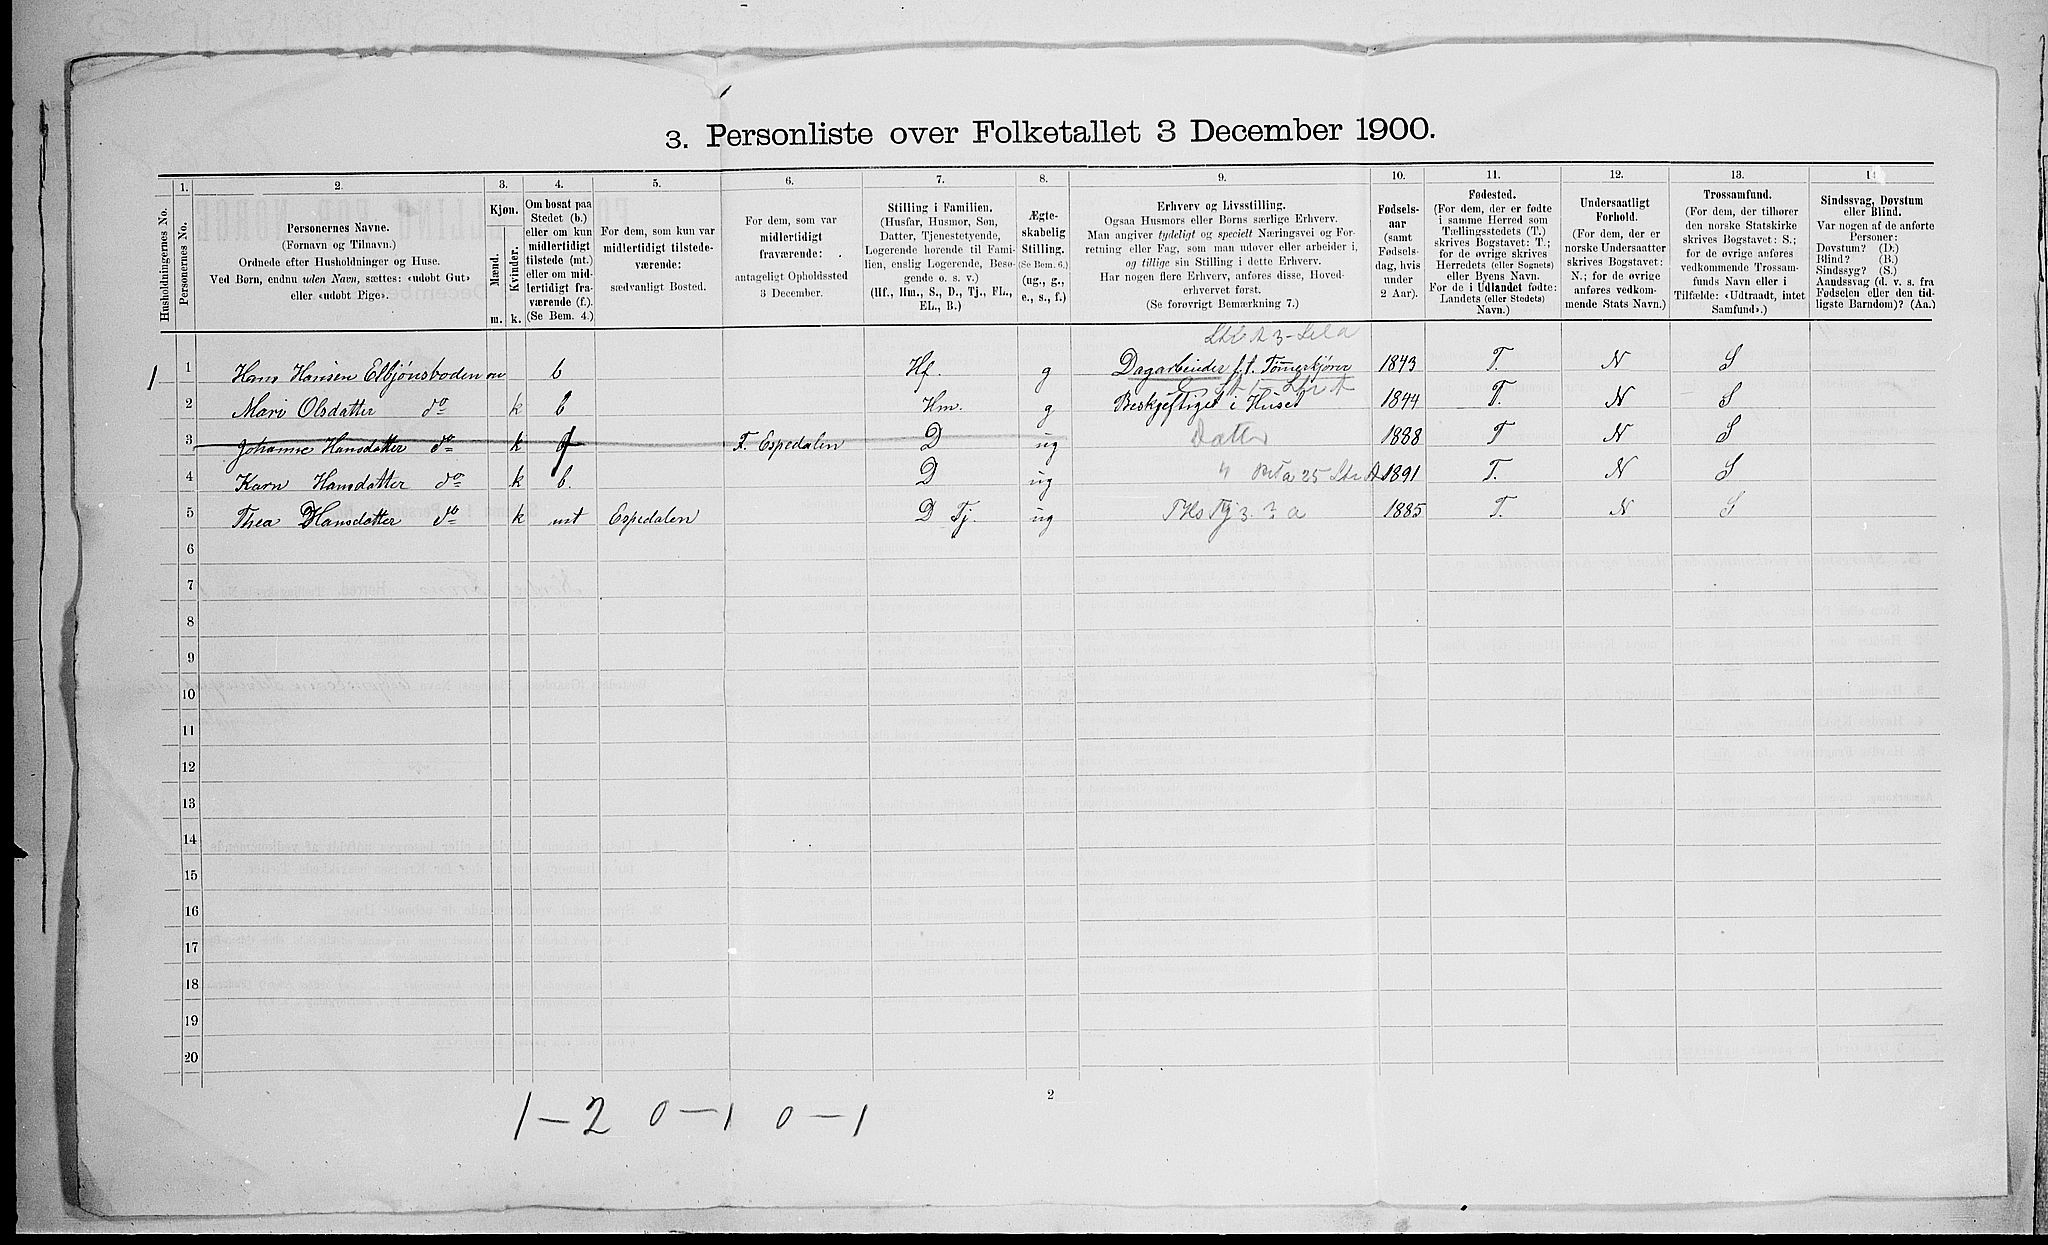 3. Personliste over Folketallet 3 December 1900.
1. 2. 3. 4. 5. 6. 7. 8. 9. 10. 11. 12. 13. 14
Husholdningernes No.
Personernes No.
Personernes Navne.
(Fornavn og Tilnavn.)
Ordnede efter Husholdninger og Huse.
Ved Børn, endnu uden Navn, sættes: «udøbt Gut»
eller «udøbt Pige».
Kjøn.
Mænd.
Kvinder.
m. k.
Om bosat paa
Stedet (b.)
eller om kun
midlertidigt
tilstede (mt.)
eller om mid-
lertidigt fra-
værende (f.).
(Se Bem. 4.)
For dem, som kun var
midlertidigt tilstede-
værende:
sædvanligt Bosted.
For dem, som var
midlertidigt
fraværende:
antageligt Opholdssted
3 December.
Stilling i Familien.
(Husfar, Husmor, Søn,
Datter, Tjenestetyende,
Logerende hørende til Fami-
lien, enslig Logerende, Besø-
gende o. s. v.)
(Hf., Hm., S., D., Tj., FL.,
EL., B.)
Ægte-
skabelig
Stilling.
(Se Bem. 6.)
(ug., g.,
e., s., f.)
Erhverv og Livsstilling.
Ogsaa Husmors eller Børns særlige Erhverv.
Man angiver tydeligt og specielt Næringsvei og For-
retning eller Fag, som man udover eller arbeider i,
og tillige sin Stilling i dette Erhverv.
Har nogen flere Erhverv, anføres disse, Hoved-
erhvervet først.
(Se forøvrigt Bemærkning 7.)
Fødsels-
aar
(samt
Fødsels-
dag, hvis
under
2 Aar).
Fødested.
(For dem, der er fødte
i samme Herred som
Tællingsstedets (T.)
skrives Bogstavet: T.;
for de øvrige skrives
Herredets (eller Sognets)
eller Byens Navn.
For de i Udlandet fødte:
Landets (eller Stedets)
Navn.)
Undersaatligt
Forhold.
(For dem, der er
norske Undersaatter
skrives Bogstavet:
N.; for de øvrige
anføres vedkom-
mende Stats Navn.)
Trossamfund.
(For dem, der tilhører
den norske Statskirke
skrives Bogstavet: S.;
for de øvrige anføres
vedkommende Trossam-
funds Navn eller i
Tilfælde: «Udtraadt, intet
Samfund».)
Sindssvag, Døvstum
eller Blind.
Var nogen af de anførte
Personer:
Døvstum? (D.)
Blind? (B.)
Sindssyg? (S.)
Aandssvag (d. v. s. fra
Fødselen eller den tid-
ligste Barndom)? (Aa.)
1 1 Hans Hansen Elbjønsboden m b Hf. g Dagarbeider f.t. Tømmerkjører 1843 T. N S
2 Mari Olsdatter do k b Hm. g Beskjeftiget i Huset 1844 T. N S
3 Johanne Hansdatter do k f F. Espedalen D ug Datter 1888 T N S
4 Karn Hansdatter do k b. D ug 1891 T. N S
5 Thea Hansdatter do k mt Espedalen D Tj. ug 1885 T. N S
6
7
8
9
10
11
12
13
14
15
16
17
18
19
20
2
1–2 0–1 0–1